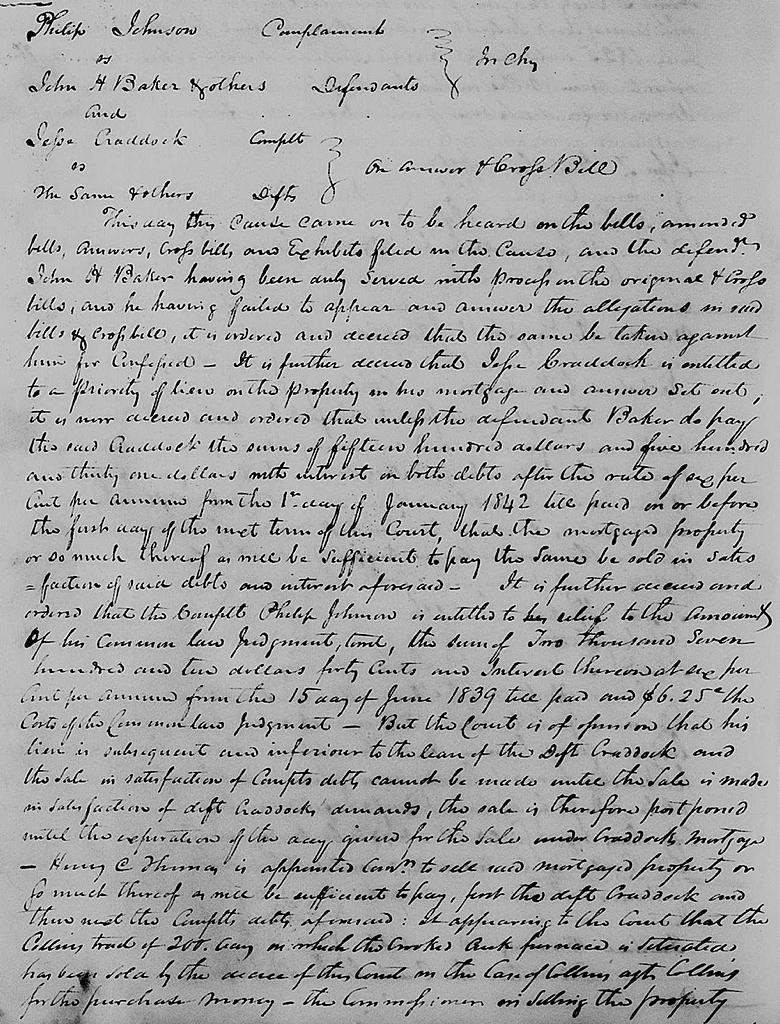 Philip Johnson Complainant
vs In Chy
John H Baker & others Defendants
and
Jesse Craddock Complt
vs On Answer & Cross Bill
The Same & others Defts
This day this Cause came on to be heard on the bills, amend^d
bills, answers, Cross bills and Exhibits filed in the Cause, and the defend^t
John H Baker having been duly Served with process on the original & Cross
bills, and he having failed to appear and answer the allegations in said
bills & Cross bill, it is ordered and decreed that the same be taken against
him for Confessed – It is further decreed that Jesse Craddock is entitled
to a priority of lien on the Property in his mortgage and answer Set out,
it is now decreed and ordered that unless the defendant Baker do pay
the said Craddock the sums of fifteen hundred dollars and five hundred
and thirty one dollars with interest on both debts after the rate of six per
Cent per annum from the 1st day of January 1842 till paid on or before
the first day of the next term of this Court, that the mortgaged property
or so much thereof as will be Sufficient to pay the Same be sold in Satis
=faction of said debts and interest aforesaid – It is further decreed and
ordered that the Complt Philip Johnson is entitled to his relief to the amount
Of his Common law Judgment, towit, the sum of Two Thousand Seven
hundred and ten dollars forty Cents and Interest thereon at six per
Cent per annum from the 15 day of June 1839 till paid and $6.25^c the
Costs of the Common law Judgment – But the Court is of opinion that his
lien is subsequent and inferiour to the lean of the Deft Craddock and
the Sale in satisfaction of Complts debts cannot be made until the Sale is made
in satisfaction of deft Craddocks' demands, the sale is therefore postponed
until the expiration of the day given for the Sale under Craddocks mortgage
– Henry C Thomas is appointed Com^r to sell said mortgaged property or
So much thereof as will be sufficient to pay, first the deft Craddock and
then next the Complts debts aforesaid: It appearing to the Court that the
Collins tract of 200 on which the Crooked furnace is Situated
has been sold by the decree of this Court in the Case of Collins agts Collins
for the purchase money – the Commissioner in Selling the property